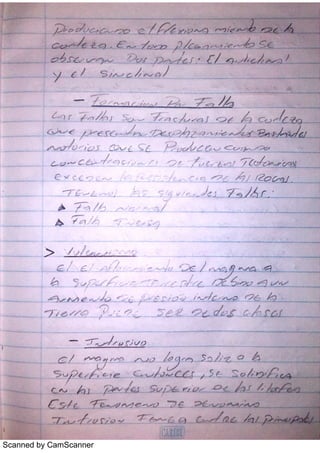 Produciendo el flexionamiento de la
corteza. En todo Plegamiento Se
observan Dos partes: El anticlinal
y el Sinclinal
- Formacion Por Falla
Las Fallas Son fracturas de la corteza
que presentan Desplazamientos Bastantes
notorios que SE Producen cuando
concentraciones De fuerzas Tectonicas
exceden la resistencia De las ROCAS.
Tenemos las siguientes Fallas:
Falla Normal
Falla Inversa
> Vulcanismo
el afloramiento DEl magma a
la Superficie Terrestre Debido a un
aumento de presion interna De la
Tierra Puede SER De dos clases
- Intrusivo
El magma no logra Salir a la
Superficie entonces, se Solidifica
en las partes Superior de las litosfera
Este Fenomeno SE denomina
Intrusion entre las principales
Scanned by CamScanner